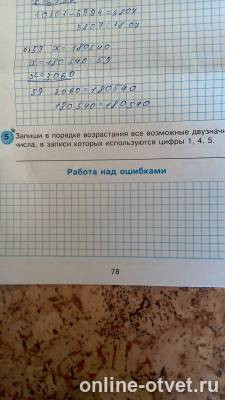 10801-6994=3807
3807=3807
x=180540
x=180540 59
x=3060
59 3060=180540
180540=180540
5 Запиши в порядке возрастания все возможные двузначн
числа, в записи которых используются цифры 1, 4, 5.
Работа над ошибками
78
online-otvet.ru